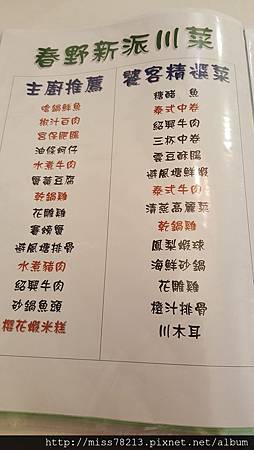 春野新派川菜
主廚推薦
嗆鍋鮮魚
椒汁百肉
宮保肥腸
油條蚵仔
水煮牛肉
蟹黃豆腐
乾鍋雞
花雕雞
賽螃蟹
避風塘排骨
水煮豬肉
紹興牛肉
砂鍋魚頭
櫻花蝦米糕
饕客精選菜
糖醋 魚
泰式中卷
紹興牛肉
三杯中卷
雲豆酥腸
避風塘鮮蝦
泰式牛肉
清蒸高麗菜
乾鍋雞
鳳梨蝦球
海鮮砂鍋
花雕雞
橙汁排骨
川木耳
http://miss78213.pixnet.net/album